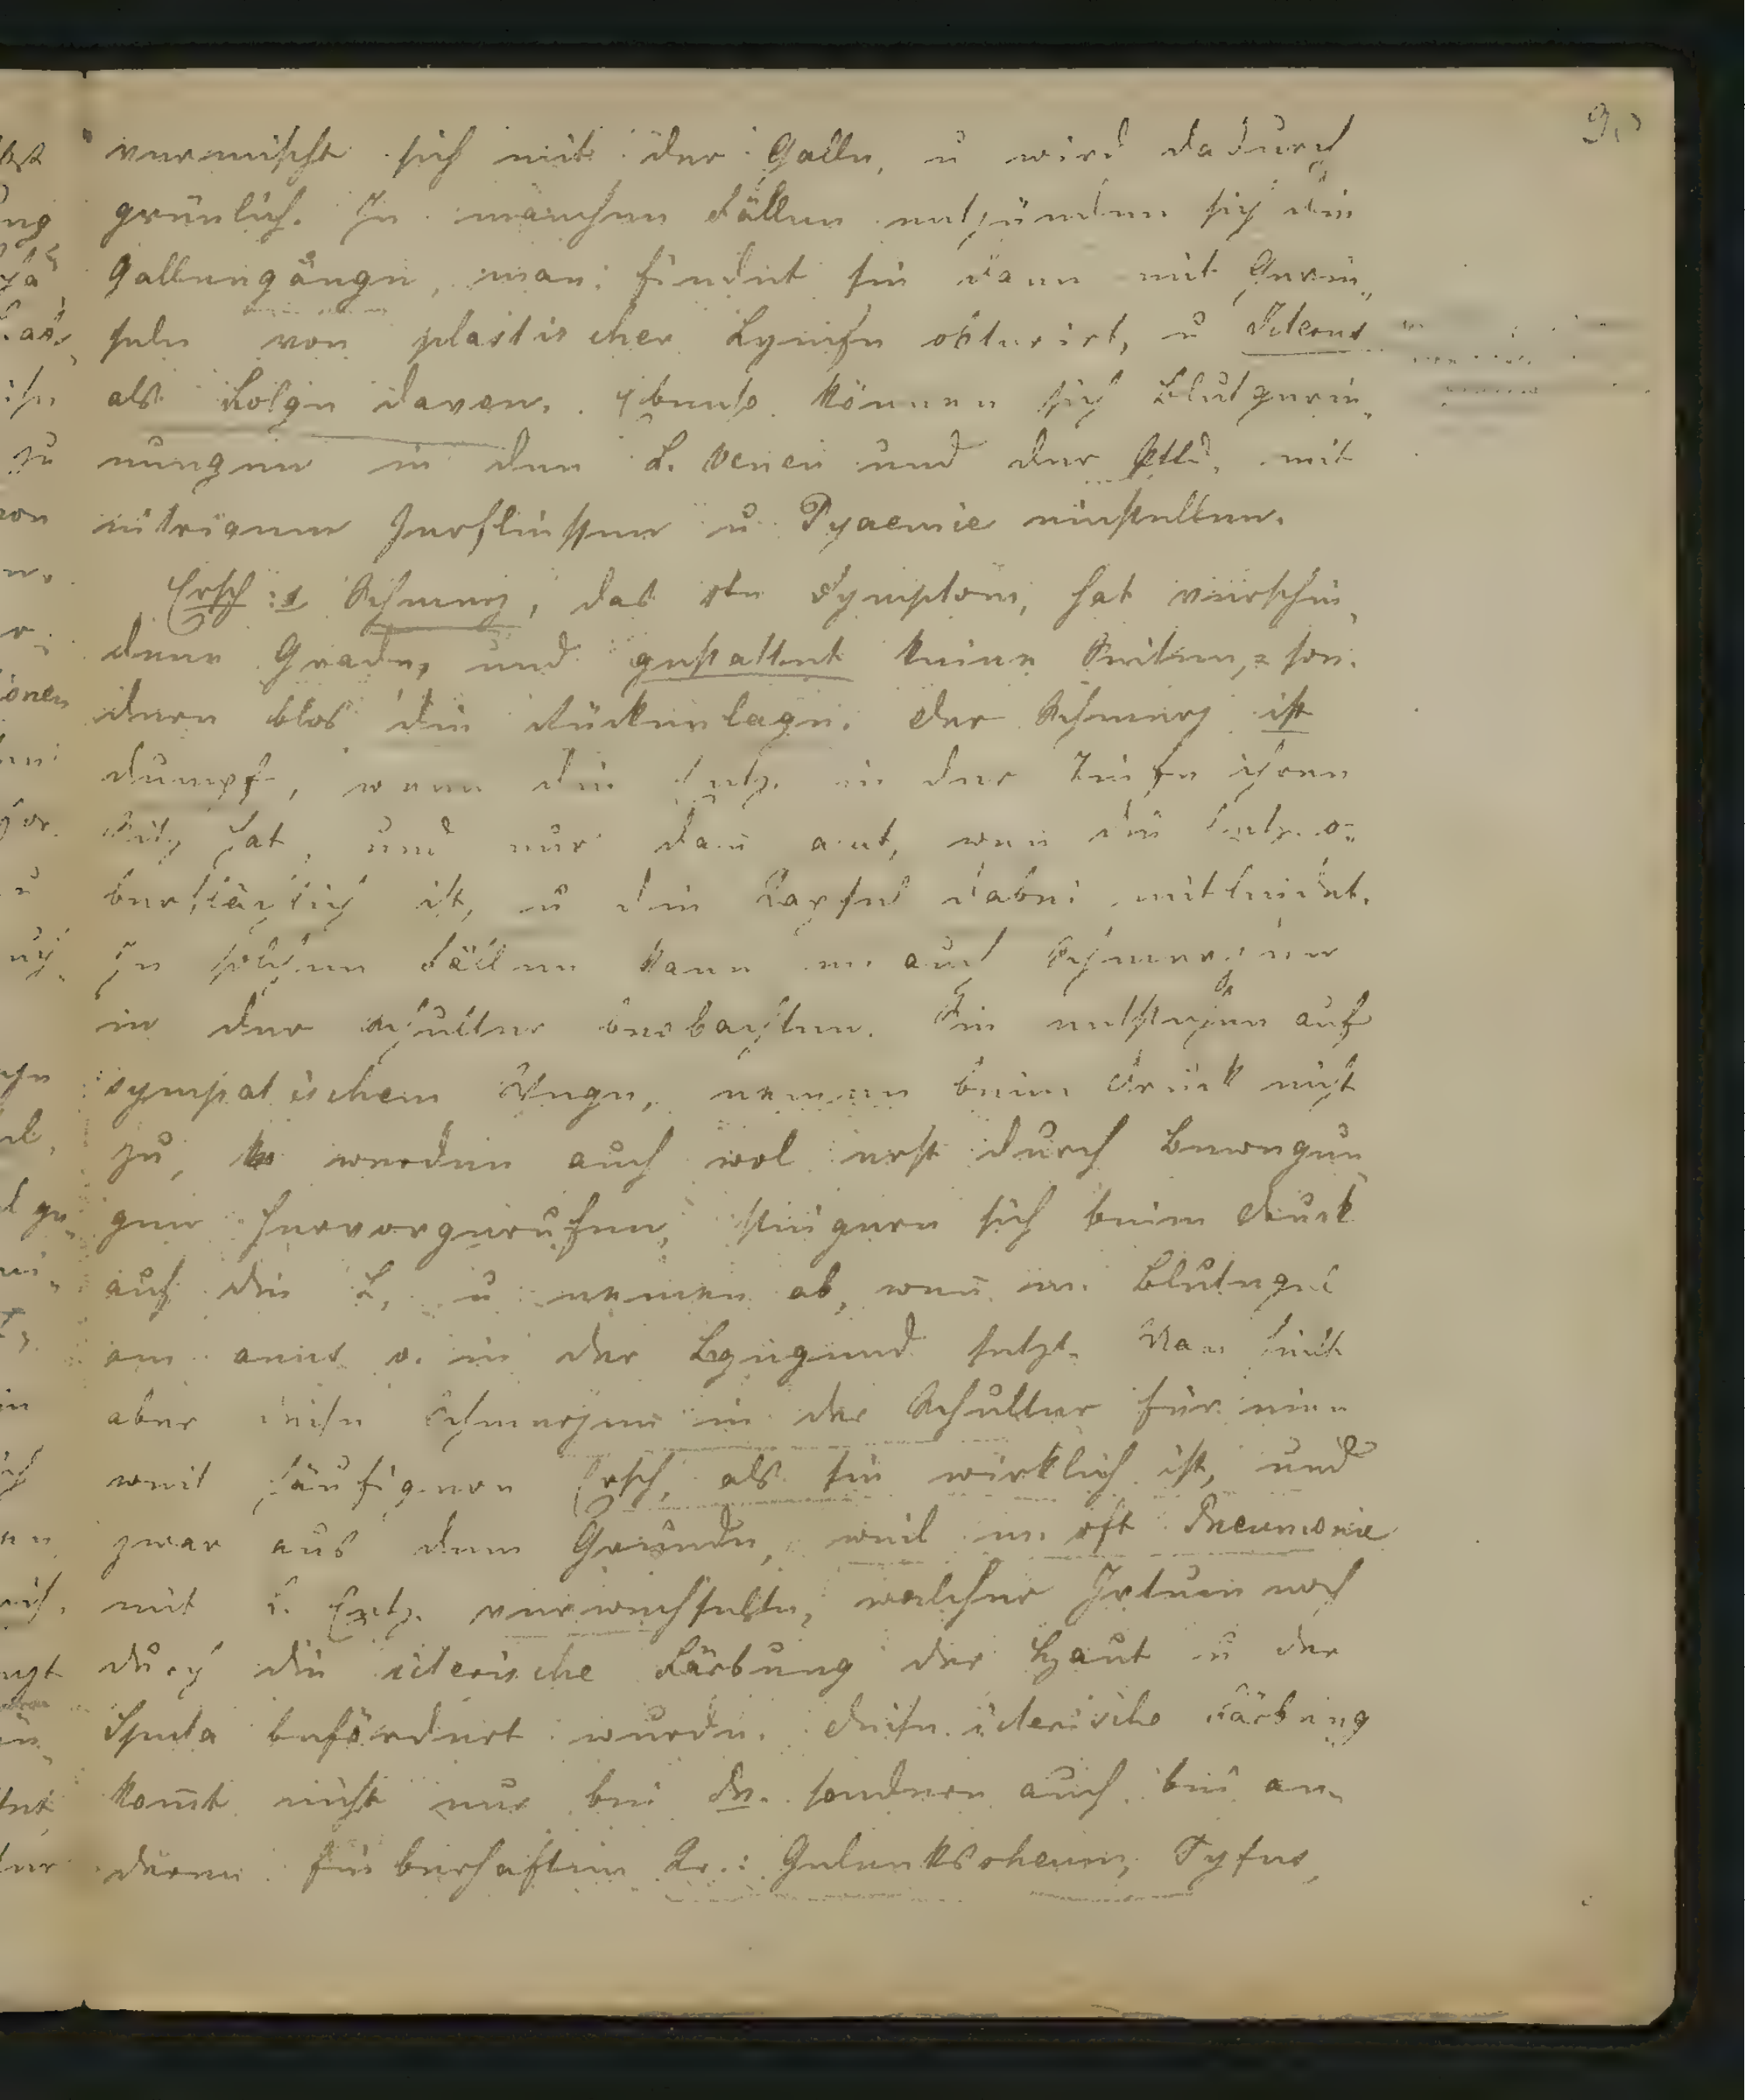 9.
vermischt sich mit der Galle, u wird dadurch
grünlich. In manchen Fällen entzünden sich die
Gallengänge, man findet sie dann mit Gerin„
seln von plastischer Lymfe obturirt, u Icterus
als Folge davon. Ebenso können sich Blutgerin„
nungen in den L. Venen und der Pftd. mit
eitrigem Zerfliessen u Pyaemie einstellen.
Ersch: Schmerz, das Symptom, hat verschie„
dene Grade, und gestattet keine Seiten, son„
dern blos die Rückenlage. Der Schmerz ist
dumpf, wenn die Entz. in der Tiefe ihren
Sitz hat, und nur dan acut, wen die Entz. o„
berflächlich ist, u die Kapsel dabei mitleidet.
In solchen Fällen kann m auch Schmerzen
in der Schulter beobachten. Sie entstehen auf
sympatischem Wege, nemen beim Druck nicht
zu, werden auch wol erst durch Bewegun„
gen hervorgerufen, steigern sich beim Druck
auf die L, u nemen ab, wen m. Blutegel
am anus o. in der Lggegend setzt. Man hielt
aber diese Schmerzen in der Schulter für eine
weit häufigere Ersch, als sie wirklich ist, und
zwar aus dem Grunde, weil m. oft Pneumonie
mit L. Entz. verwechselte, welcher Irtum noch
durch die icterische Färbung der Haut u der
Sputa befördert wurde. Diese icterische Färbung
komt nicht nur bei Pn. sondern auch bei an„
deren fieberhaften Kr.: Gelenksrheum, Tyfus,